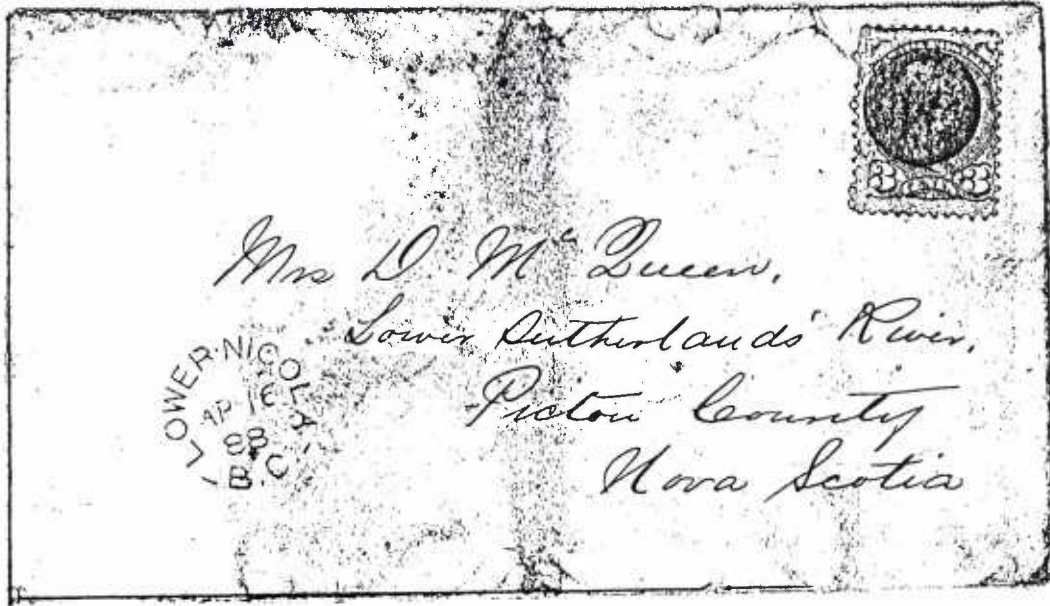 Mrs D Mc Queen,
Lower Sutherlands' River,
Pictou County
Nova Scotia
LOWER·NICOLA
AP 16
88
B.C.
3 3